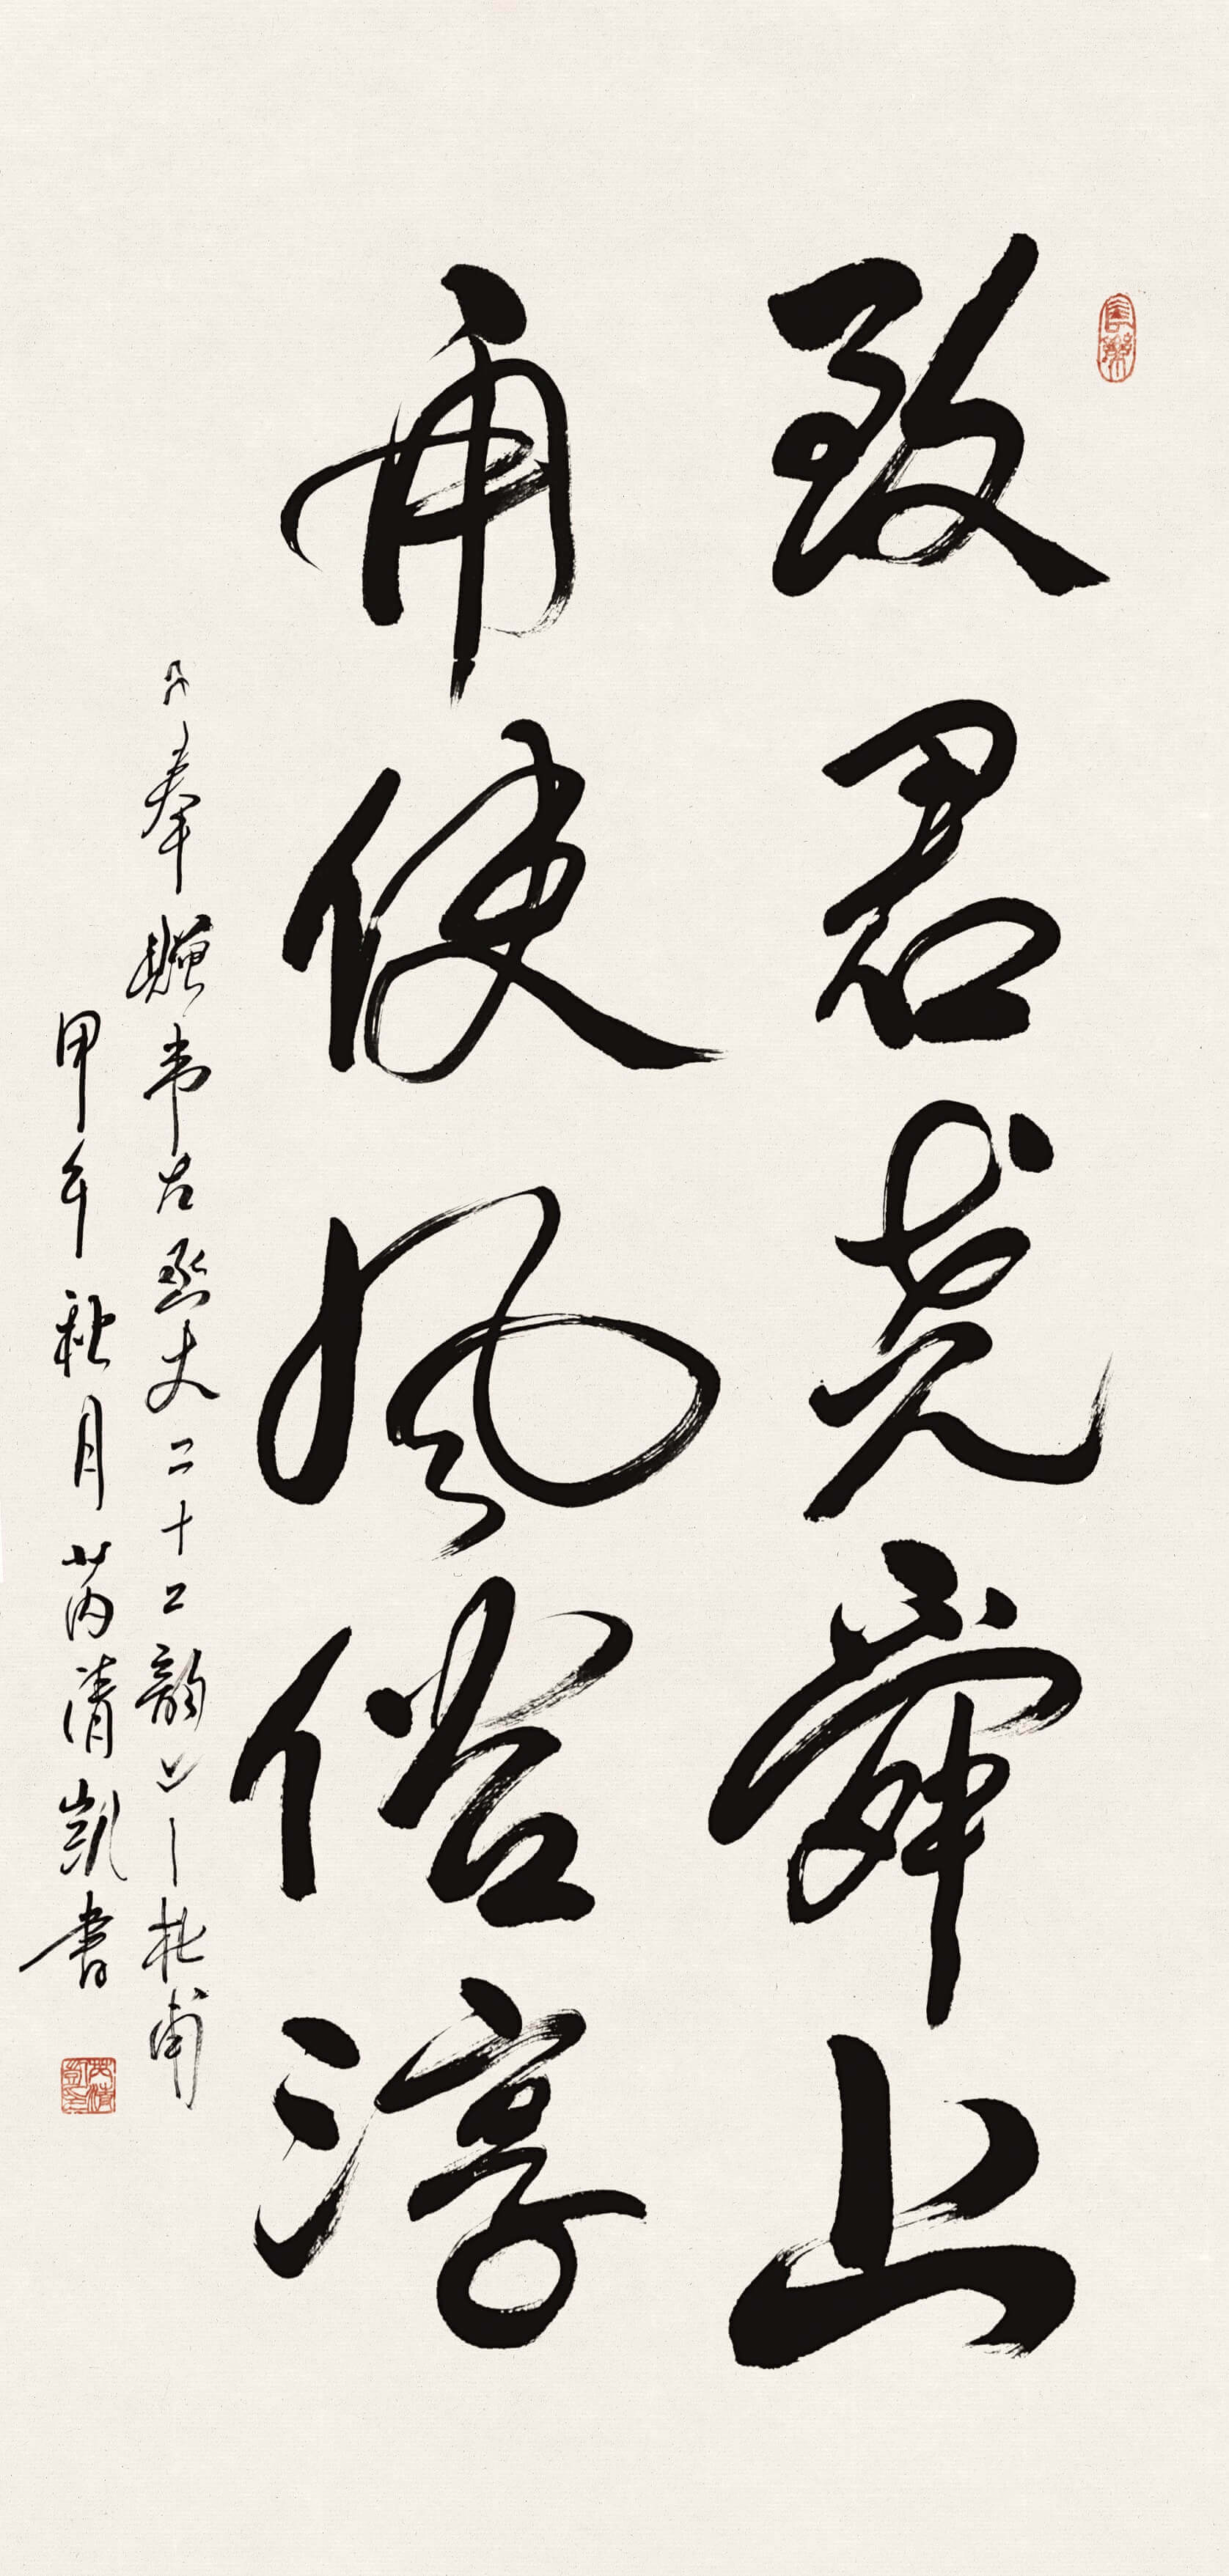 致君尧舜上
再使风俗淳
《奉赠韦左丞丈二十二韵》—杜甫
甲午秋月芮清凯书
芮清凯